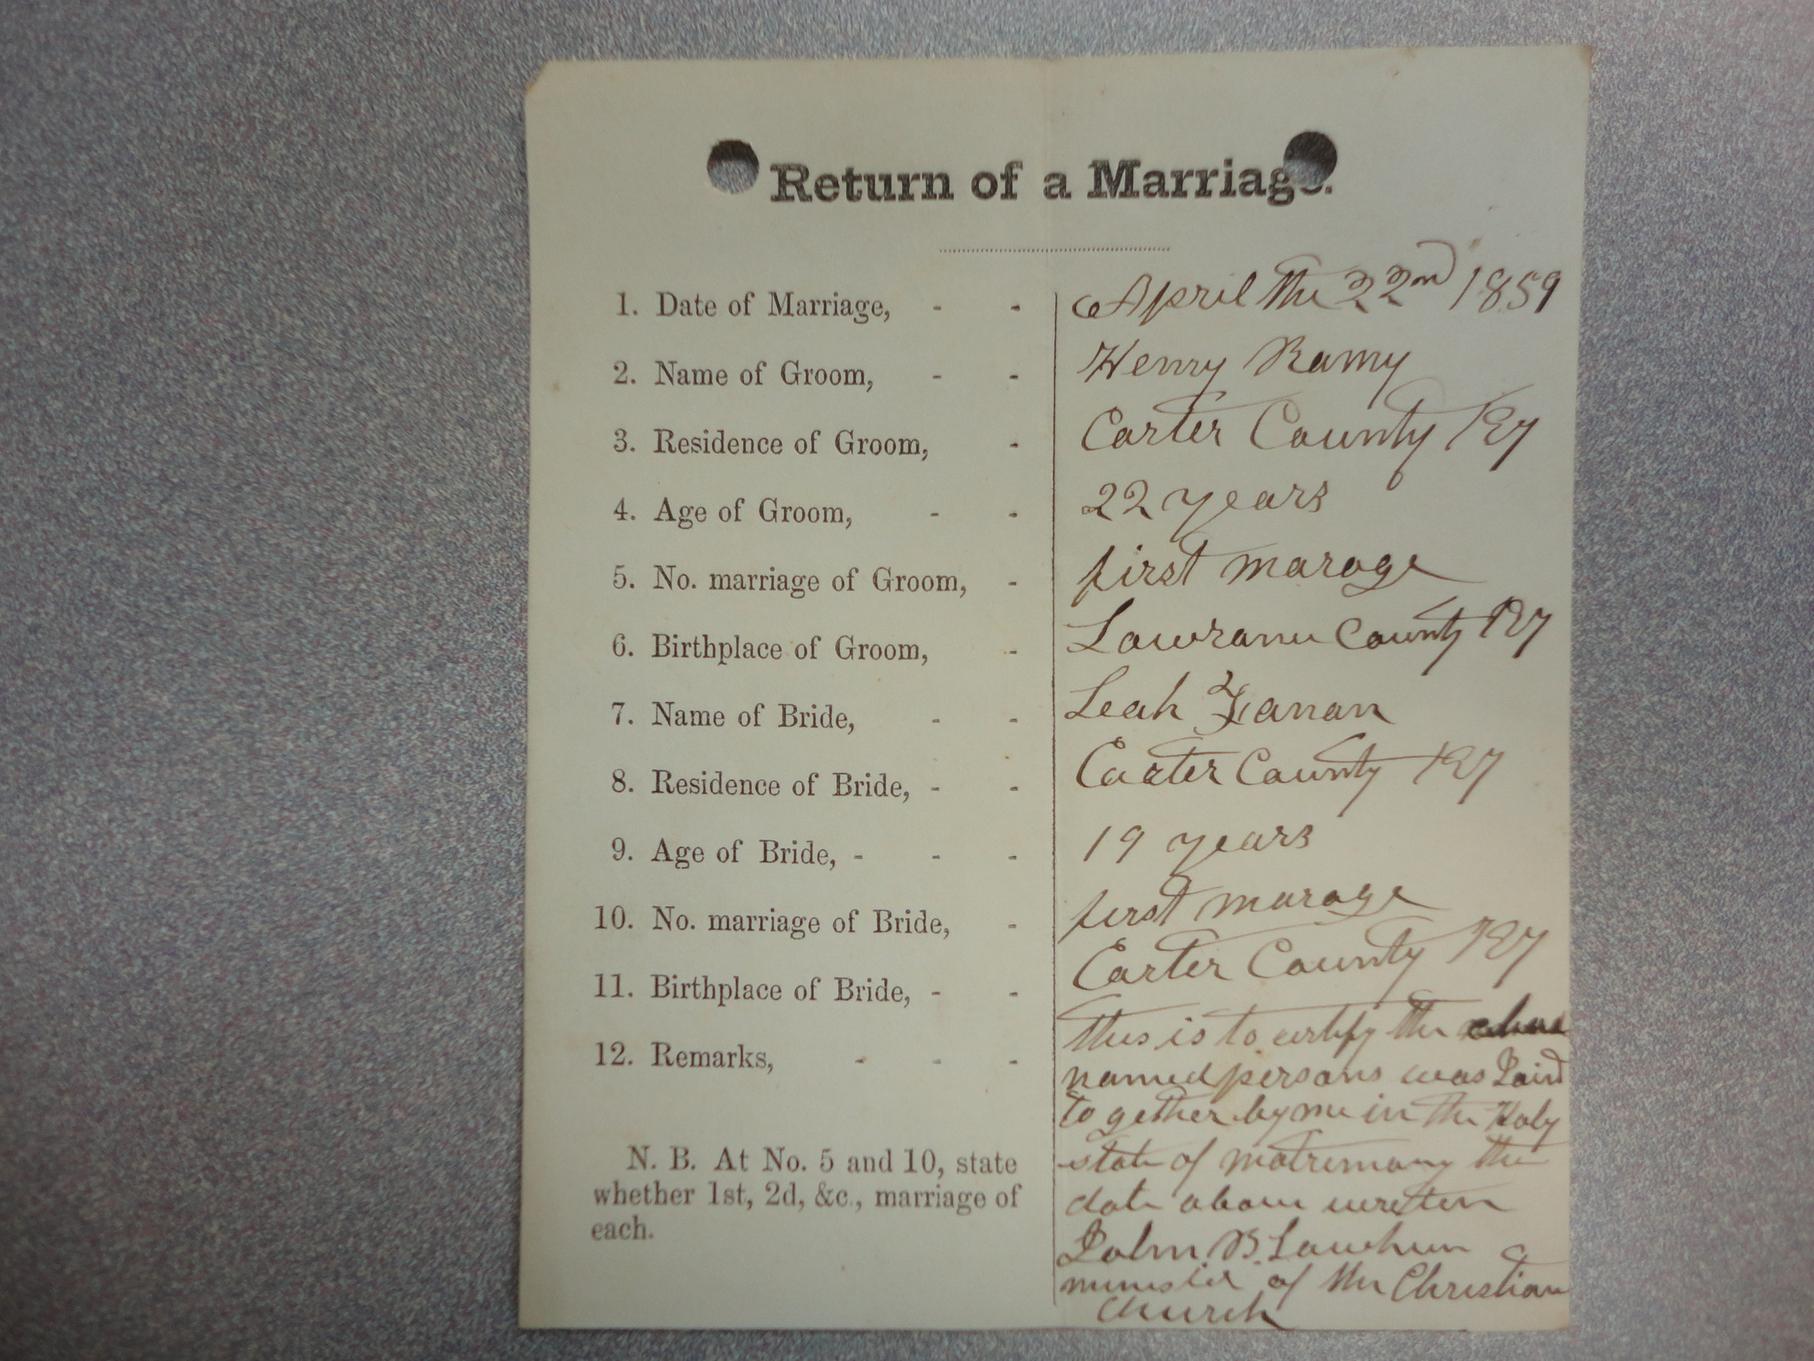 Return of a Marriage.
1. Date of Marriage, - - April the 22nd 1859
2. Name of Groom, - - Henry Ramy
3. Residence of Groom, - Carter County Ky
4. Age of Groom, - - 22 years
5. No. marriage of Groom, - first marage
6. Birthplace of Groom, - Lawrance County Ky
7. Name of Bride, - - Leah
8. Residence of Bride, - - Carter County Ky
9. Age of Bride, - - - 19 years
10. No. marriage of Bride, - first marage
11. Birthplace of Bride, - - Carter County Ky
12. Remarks, - - - this is to certify the above
named persons was Joind
to gether by me in the Holy
state of matremony the
date above wretten
John B. Lawhun
minister of the Christian
Church
N. B. At No. 5 and 10, state
whether 1st, 2d, &c., marriage of
each.